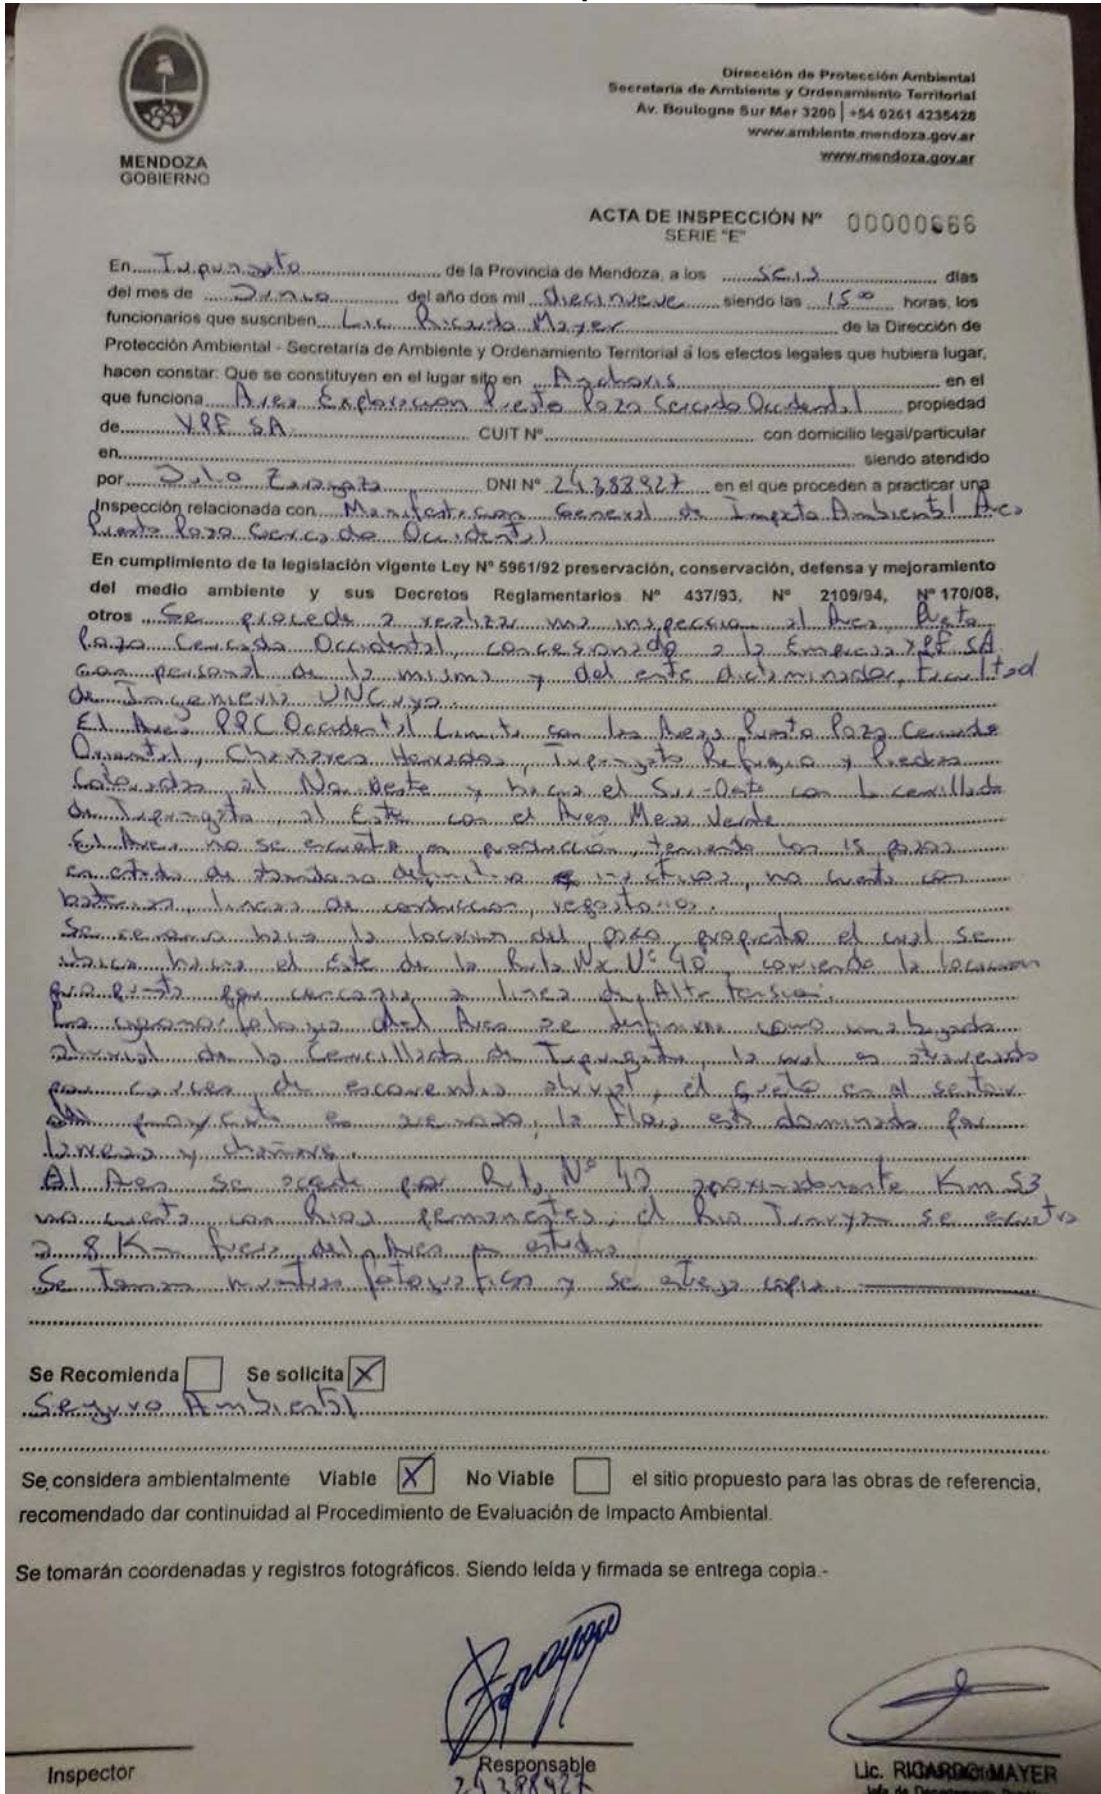 MENDOZA
GOBIERNO
Dirección de Protección Ambiental
Secretaría de Ambiente y Ordenamiento Territorial
Av. Boulogne Sur Mer 3200 | +54 0261 4235428
www.ambiente.mendoza.gov.ar
www.mendoza.gov.ar
ACTA DE INSPECCIÓN Nº 00000666
SERIE "E"
En Tupungato de la Provincia de Mendoza, a los seis días
del mes de Junio del año dos mil diecinueve siendo las 15⁰⁰ horas, los
funcionarios que suscriben Lic. Ricardo Mayer de la Dirección de
Protección Ambiental - Secretaría de Ambiente y Ordenamiento Territorial a los efectos legales que hubiera lugar,
hacen constar: Que se constituyen en el lugar sito en Anchoris en el
que funciona Area Exploracion Puesto Pozo Cercado Occidental propiedad
de YPF SA CUIT Nº con domicilio legal/particular
en siendo atendido
por Julio DNI Nº 24.388.927 en el que proceden a practicar una
Inspección relacionada con Manifestacion General de Impacto Ambiental Area
Puesto Pozo Cercado Occidental
En cumplimiento de la legislación vigente Ley Nº 5961/92 preservación, conservación, defensa y mejoramiento
del medio ambiente y sus Decretos Reglamentarios Nº 437/93, Nº 2109/94, Nº 170/08,
otros Se procede a realizar una inspeccion al Area Puesto
Pozo Cercado Occidental, concesionado a la Empresa YPF SA
con personal de la misma y del ente dictaminador, Facultad
de Ingenieria UNCuyo.
El Area PPC Occidental Limita con las Areas Puesto Pozo Cercado
Oriental, Chañares Herrados, Tupungato Refugio y Piedras
Coloradas al Nor-Oeste y hacia el Sur-Oeste con la cerrillada
de Tupungato, al Este con el Area Mesa Verde
El Area no se encuentra en producción, teniendo los 15 pozos
en estado de abandono definitivo e inactivos, no cuenta con
baterias, lineas de conduccion, repositorios.
Se hacia la locacion del pozo propuesto el cual se
ubica hacia el Este de la Ruta Nac Nº 40, la locacion
propuesta por cercania a linea de Alta tension.
La geomorfologia del Area se define como una bajada
aluvial de la Cerrillada de Tupungato, la cual es atravesada
por cauces de escorrentia aluvial, el suelo en el sector
del proyecto es arenoso, la Flora está dominada por
Jarreas y chañares.
Al Area se accede por Ruta Nº 40 aproximadamente Km 53
no cuenta con Rios permanentes, el Rio Tunuyan se encuentra
a 8 Km fuera del Area en estudio
Se toman muestras fotograficas y se entrega copia.
Se Recomienda Se solicita X
Seguro Ambiental
Se considera ambientalmente Viable X No Viable el sitio propuesto para las obras de referencia,
recomendado dar continuidad al Procedimiento de Evaluación de Impacto Ambiental.
Se tomarán coordenadas y registros fotográficos. Siendo leída y firmada se entrega copia.-
Inspector
Responsable
24388927
Lic. RICARDO MAYER